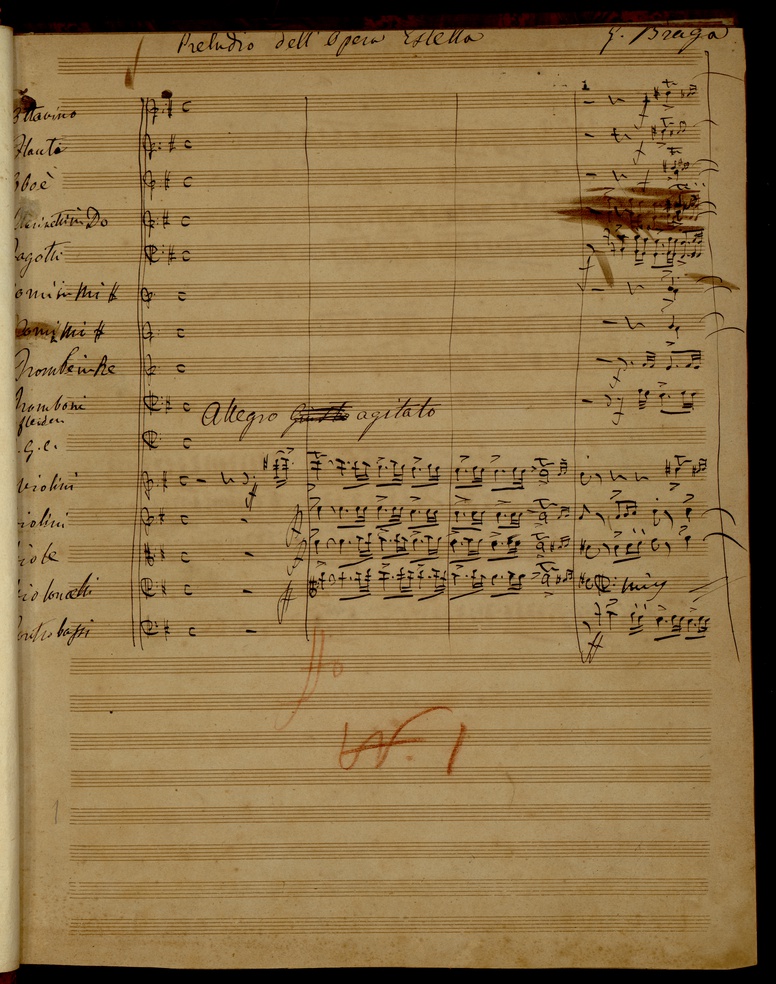 Preludio dell'Opera Estella G. Braga
Ottavino
Flauto
Oboè
Clarinetti in Do
Fagotti
Corni in Mi
Corni Mi
Trombe in Re
Tromboni
G. C.
Allegro Giusto agitato
Violini
Violini
Viole
Violoncelli
Contrabassi
N. 1
1